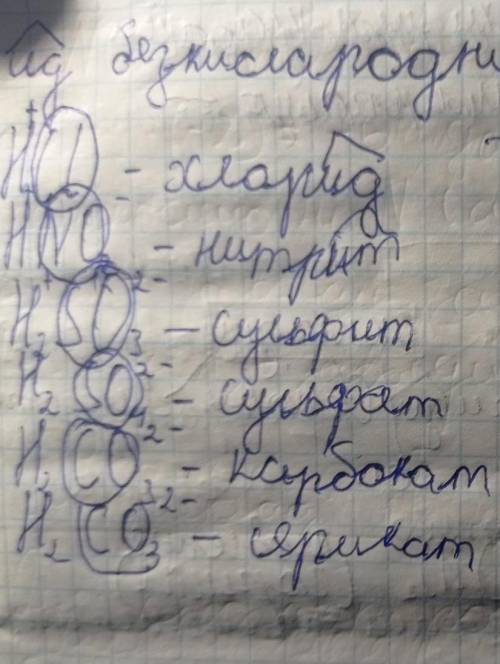 ид безкислародни
HCl - хлорид
HNO - нитрит
H₂SO₃²⁻ - сульфит
H₂SO₄²⁻ - сульфат
H₂CO₃²⁻ - карбокат
H₂CO₃²⁻ -